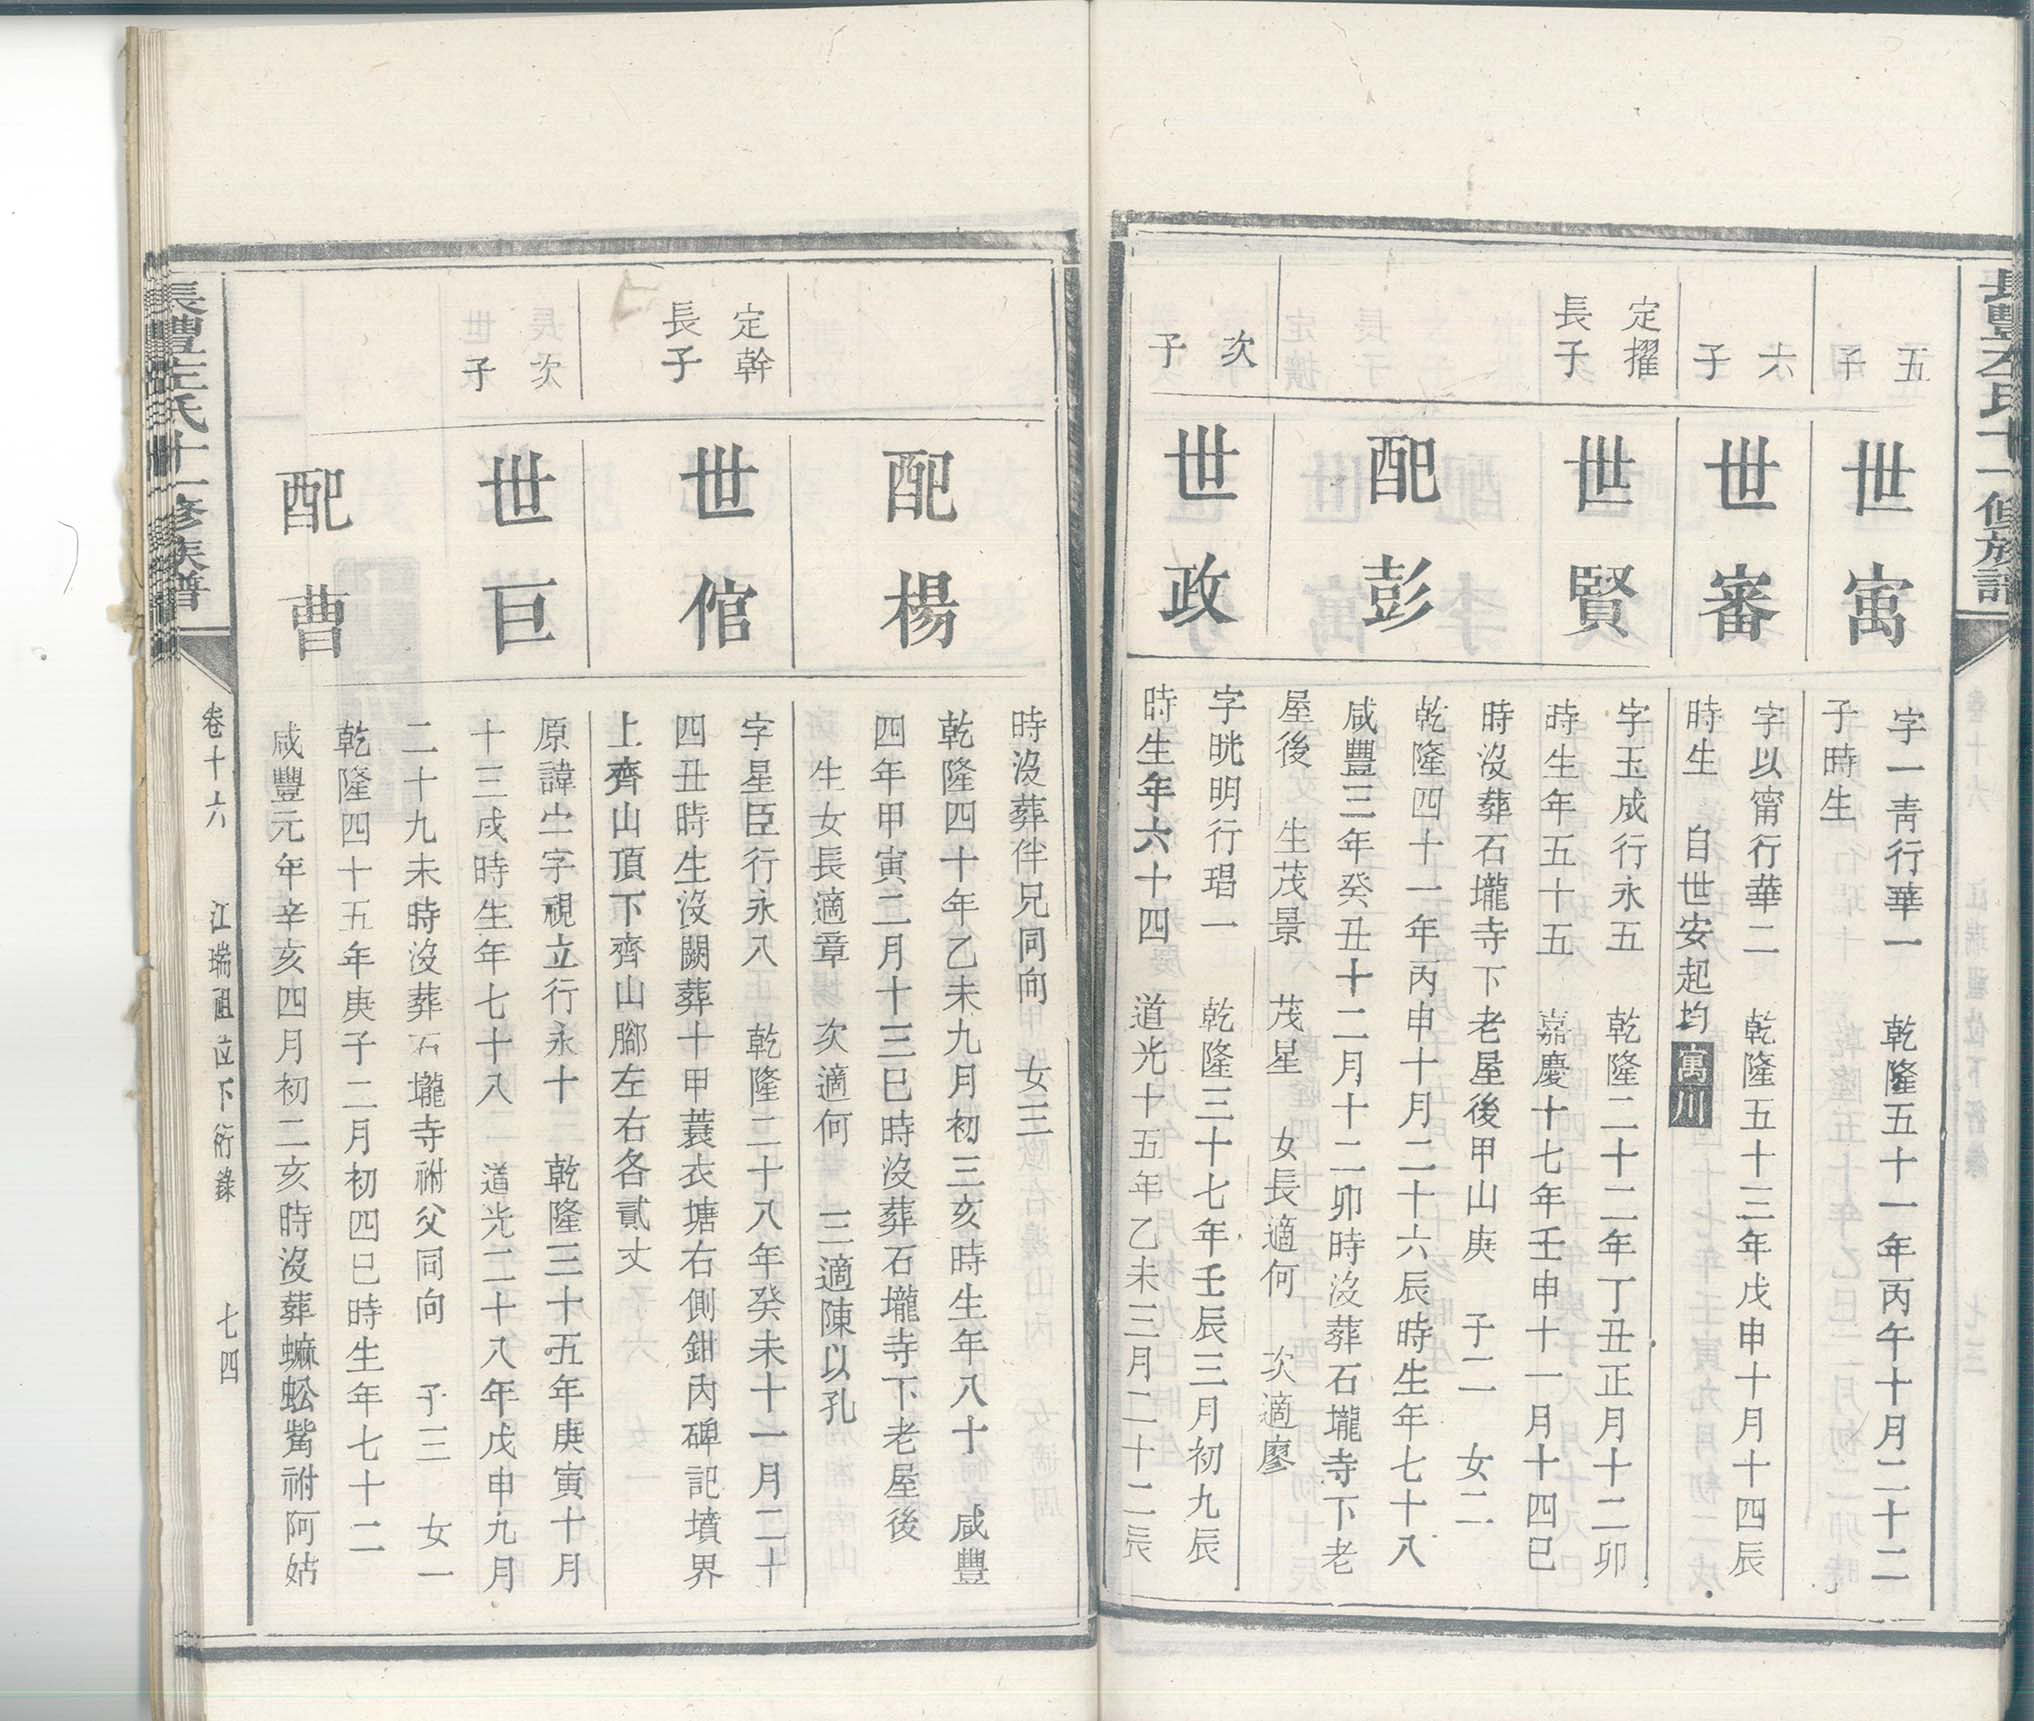 五
子
世寓
字一靑行華一　乾隆五十一年丙午十月二十二
子時生
六
子
世審
字以甯行華二　乾隆五十三年戊申十月十四辰
時生　自世安起均寓川
定擢
長子
世賢
字玉成行永五　乾隆二十二年丁丑正月十二卯
時生年五十五　嘉慶十七年壬申十一月十四巳
時沒葬石壠寺下老屋後甲山庚　子二　女二
配彭
乾隆四十一年丙申十月二十六辰時生年七十八
咸豐三年癸丑十二月十二卯時沒葬石壠寺下老
屋後　生茂景　茂星　女長適何　次適廖
次
子
世政
字晄明行琩一　乾隆三十七年壬辰三月初九辰
時生年六十四　道光十五年乙未三月二十二辰
時沒葬伴兄同向　女三
配楊
乾隆四十年乙未九月初三亥時生年八十　咸豐
四年甲寅二月十三巳時沒葬石壠寺下老屋後
生女長適章　次適何　三適陳以孔
定幹
長子
世倌
字星臣行永八　乾隆二十八年癸未十一月二十
四丑時生沒闕葬十甲蓑衣塘右側鉗內碑記墳界
上齊山頂下齊山腳左右各貳丈
次
子
世巨
原諱㞢字視立行永十　乾隆三十五年庚寅十月
十三戌時生年七十八　道光二十八年戊申九月
二十九未時沒葬石壠寺祔父同向　子三　女一
配曹
乾隆四十五年庚子二月初四巳時生年七十二
咸豐元年辛亥四月初二亥時沒葬蟒蚣觜祔阿姑
長豐左氏十一修族譜
卷十六　江瑞祖位下衍錄　七四